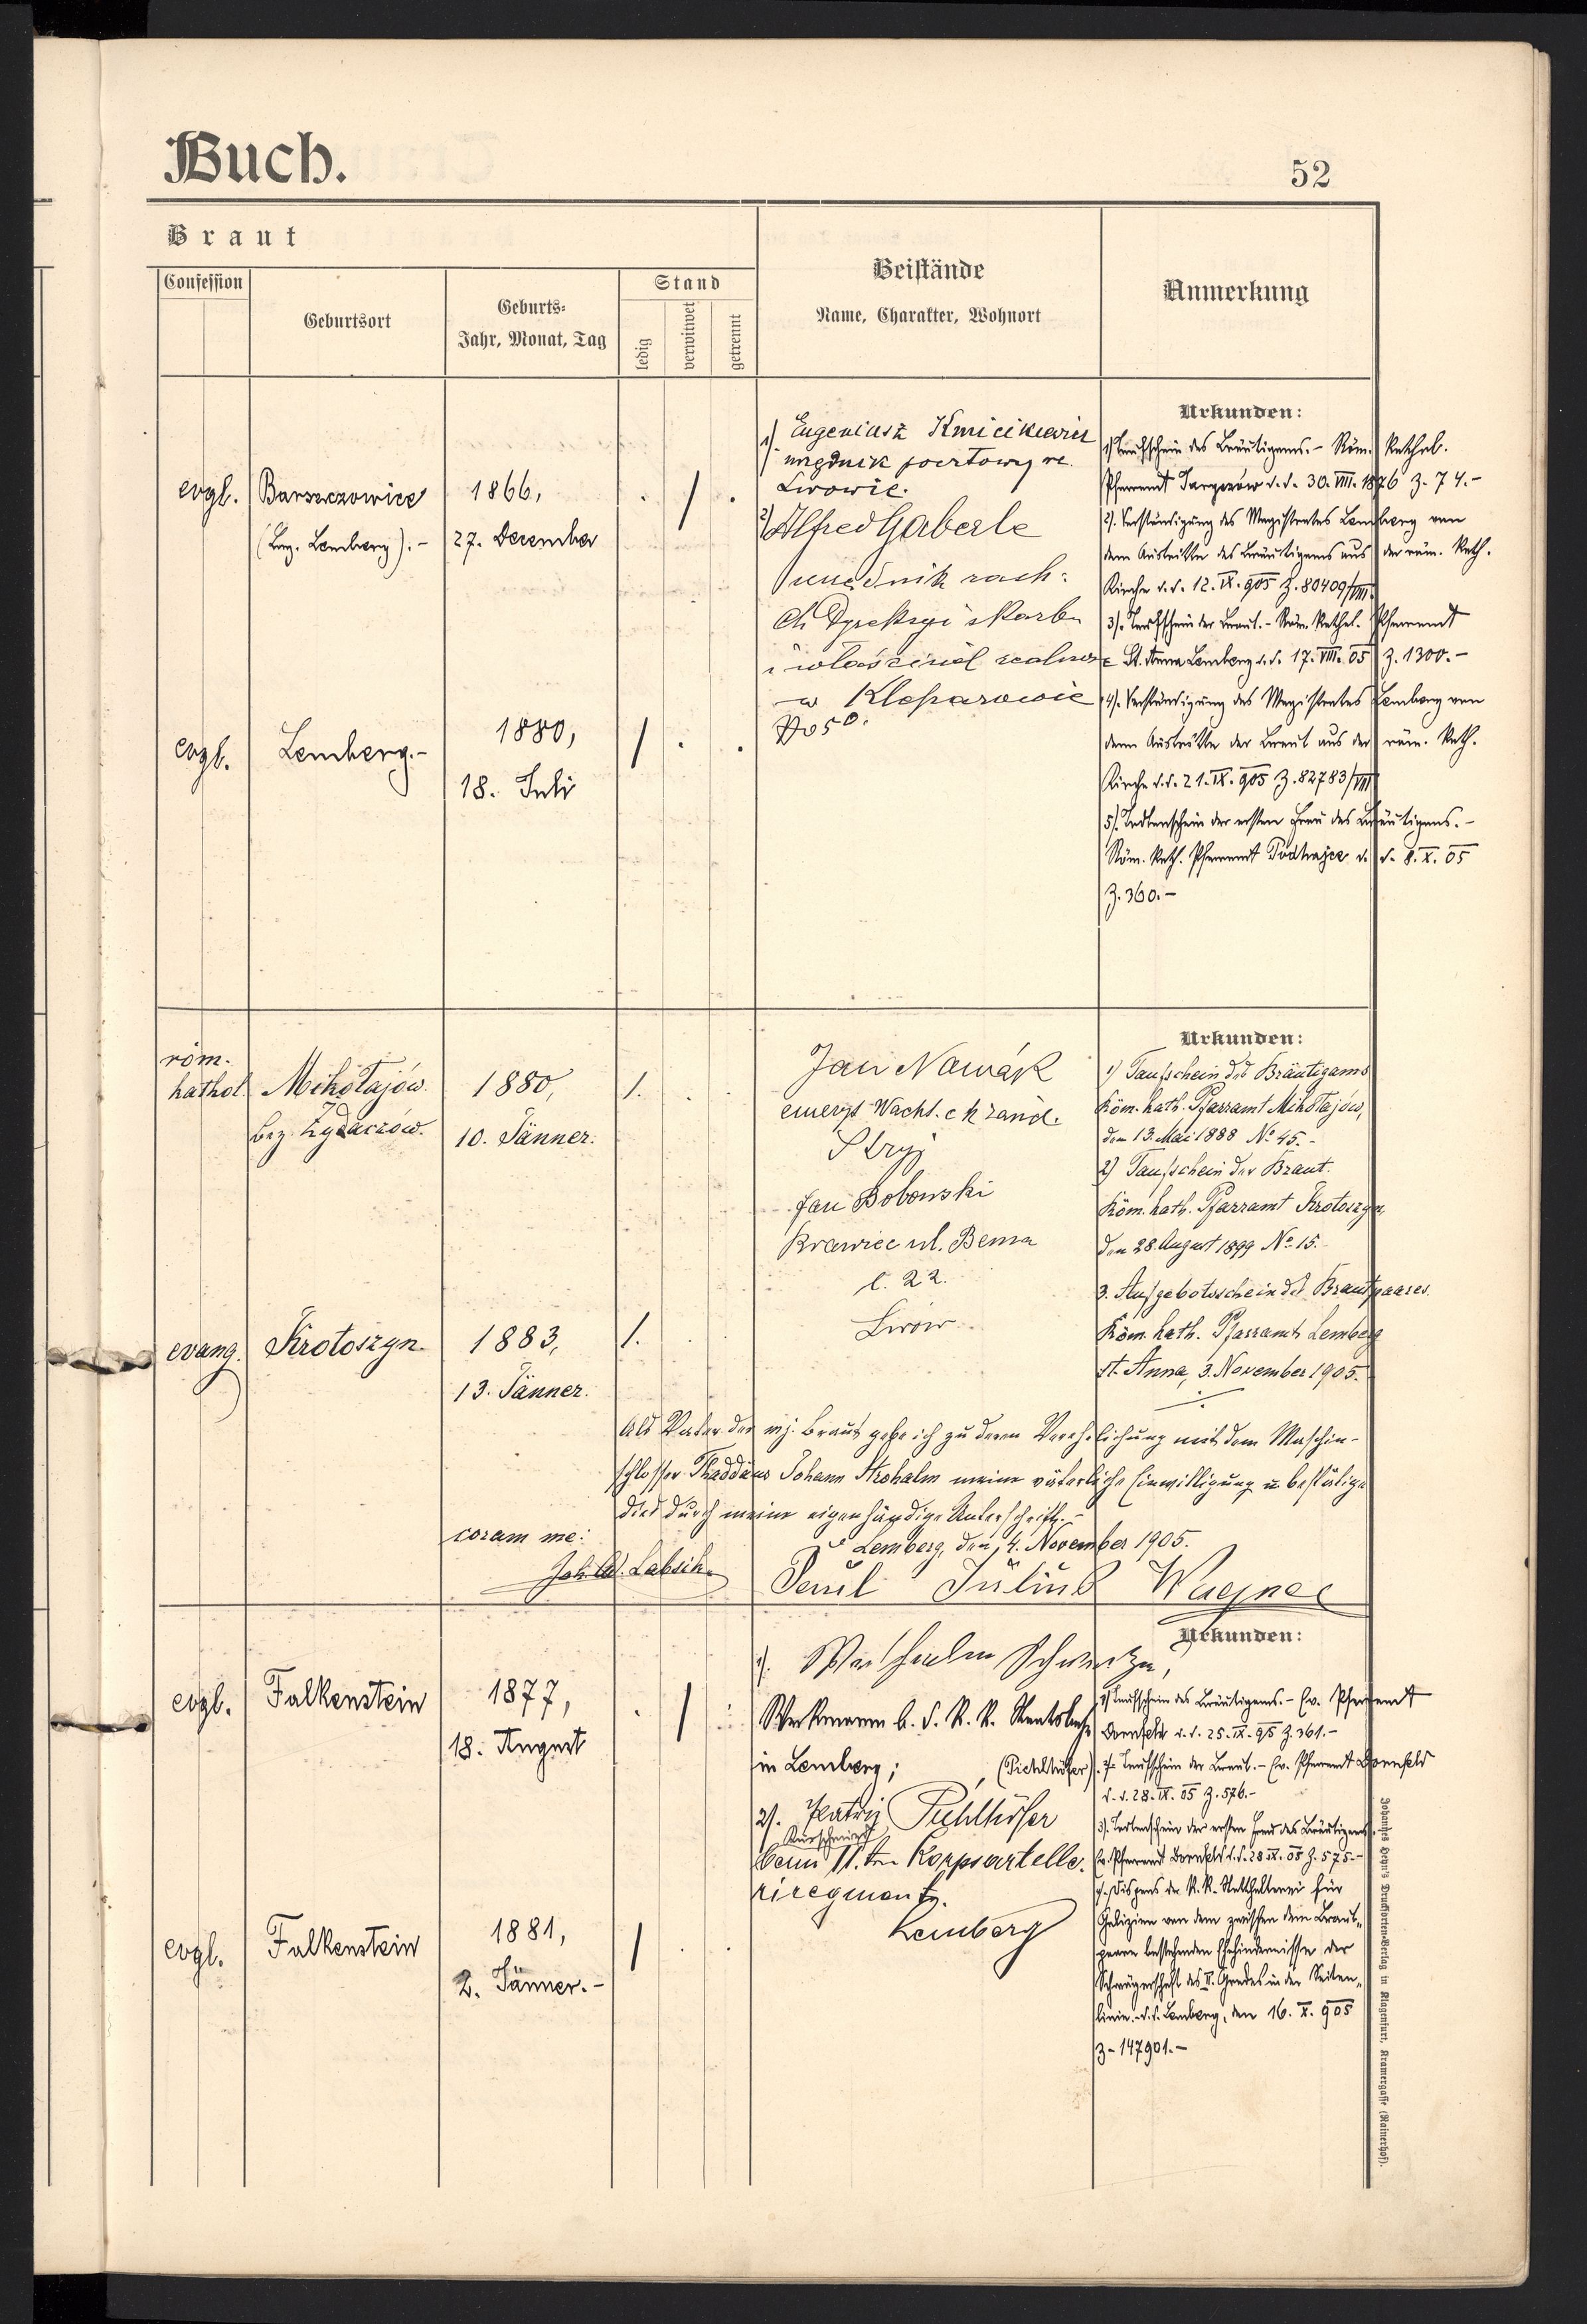 Buch.
52
Braut
Confession
Geburtsort
Geburts-
Jahr, Monat, Tag
Stand
ledig
verwitwet
getrennt
Beistände
Name, Charakter, Wohnort
Anmerkung
evgl.
Barszczowice
(Bez. Lemberg).-
1866,
27. December
1)
Eugeniusz Kmicikiewicz
urzędnik pocztowy we
Lwowie.
2) Alfred Gaberle
urzędnik rach:
Dyrekcyi skarbu
i właściciel
w Kleparowie
No 50.
evgl.
Lemberg.-
1880,
18. Juli
Urkunden:
1) Taufschein des Bräutigams.- Röm. kathol.
Pfarramt d. d. 30. VIII. 1876 Z. 74.-
2). Verständigung des Magistrates Lemberg von
dem Austritte des Bräutigams aus der röm. kath.
Kirche d. d. 12. IX. 905 Z. 80409/VIII.
3). Taufschein der Braut.- Röm. kathol. Pfarramt
St. Anna Lemberg d. d. 17. VIII. 05 Z. 1300.-
4). Verständigung des Magistrates Lemberg von
dem Austritte der Braut aus der röm. kath.
Kirche d. d. 21. IX. 905 Z. 82783/VIII
5). Todtenschein der ersten Frau des Bräutigams.-
Röm. kath. Pfarramt Podhajce d. d. 8. X. 05
Z. 360.-
röm.
kathol.
Mikołajów.
bez. Żydaczów.
1880,
10. Jänner.
1.
Jan Nowák
emeryt Wacht. c k żand.
Stryj
Jan Bobowski
Krawiec ul. Bema
l. 22.
Lwów
evang.
Krotoszyn.
1883,
13. Jänner.
1.
Urkunden:
1) Taufschein des Bräutigams
Röm. kath. Pfarramt Mikołajów,
den 13. Mai 1888 No 45.-
2) Taufschein der Braut.
Röm. kath. Pfarramt Krotoszyn,
den 28. August 1899 No 15.-
3. Aufgebotsschein des Brautpaares.
Röm. kath. Pfarramt Lemberg
St. Anna, 3. November 1905.
Als Vater der mj. Braut gebe ich zu deren Verehelichung mit dem Maschin-
schlosser Thaddäus Johann Strohalm meine väterliche Einwilligung u. bestätige
dies durch meine eigenhändige Unterschrift.-
Lemberg, den 4. November 1905.
coram me:
Labsik
Paul Julius Wagner
evgl.
Falkenstein
1877,
18. August
1). Wilhelm
Werkmann b. d. k. k. Staatsbahn
in Lemberg;
(Pichlhöfer).
2). Pichlhöfer
Kurschmied
beim 11.ten Korpsartille-
riregiment.
Lemberg
evgl.
Falkenstein
1881,
2. Jänner.-
Urkunden:
1) Taufschein des Bräutigams.- Ev. Pfarramt
Dornfeld d. d. 25. IX. 95 Z. 361.-
2. Taufschein der Braut.- Ev. Pfarramt Dornfeld
d. d. 28. IX. 05 Z. 576.-
3). Todtenschein der ersten Frau des Bräutigams.
Ev. Pfarramt Dornfeld d. d. 28. IX. 05 Z. 575.-
4. Dispens der k. k. Statthalterei für
Galizien von dem zwischen dem Braut-
paare bestehenden Ehehindernisse der
Schwägerschaft des II. Grades in der Seiten-
linie.- d. d. Lemberg, den 16. X. 905
Z- 147901.-
Johannes Heyn's Drucksorten-Verlag in Klagenfurt, Kramergasse (Rainerhof).